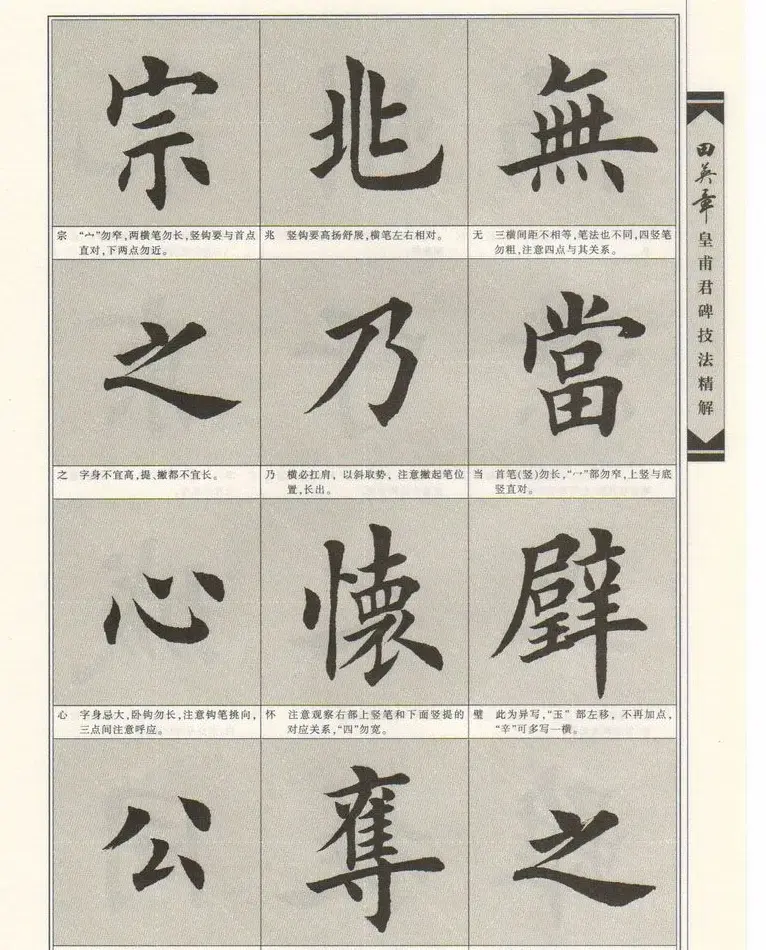 宗
兆
無
宗 “宀”勿窄，两横笔勿长，竖钩要与首点
直对，下两点勿近。
兆 竖钩要高扬舒展，横笔左右相对。
无 三横间距不相等，笔法也不同，四竖笔
勿粗，注意四点与其关系。
之
乃
當
之 字身不宜高，提、撇都不宜长。
乃 横必扛肩，以斜取势，注意撇起笔位
置，长出。
当 首笔(竖)勿长，“冖”部勿窄，上竖与底
竖直对。
心
懷
璧
心 字身忌大，卧钩勿长，注意钩笔挑向，
三点间注意呼应。
怀 注意观察右部上竖笔和下面竖提的
对应关系，“四”勿宽。
璧 此为异写，“玉”部左移，不再加点，
“辛”可多写一横。
公
奪
之
田英章
皇甫君碑技法精解